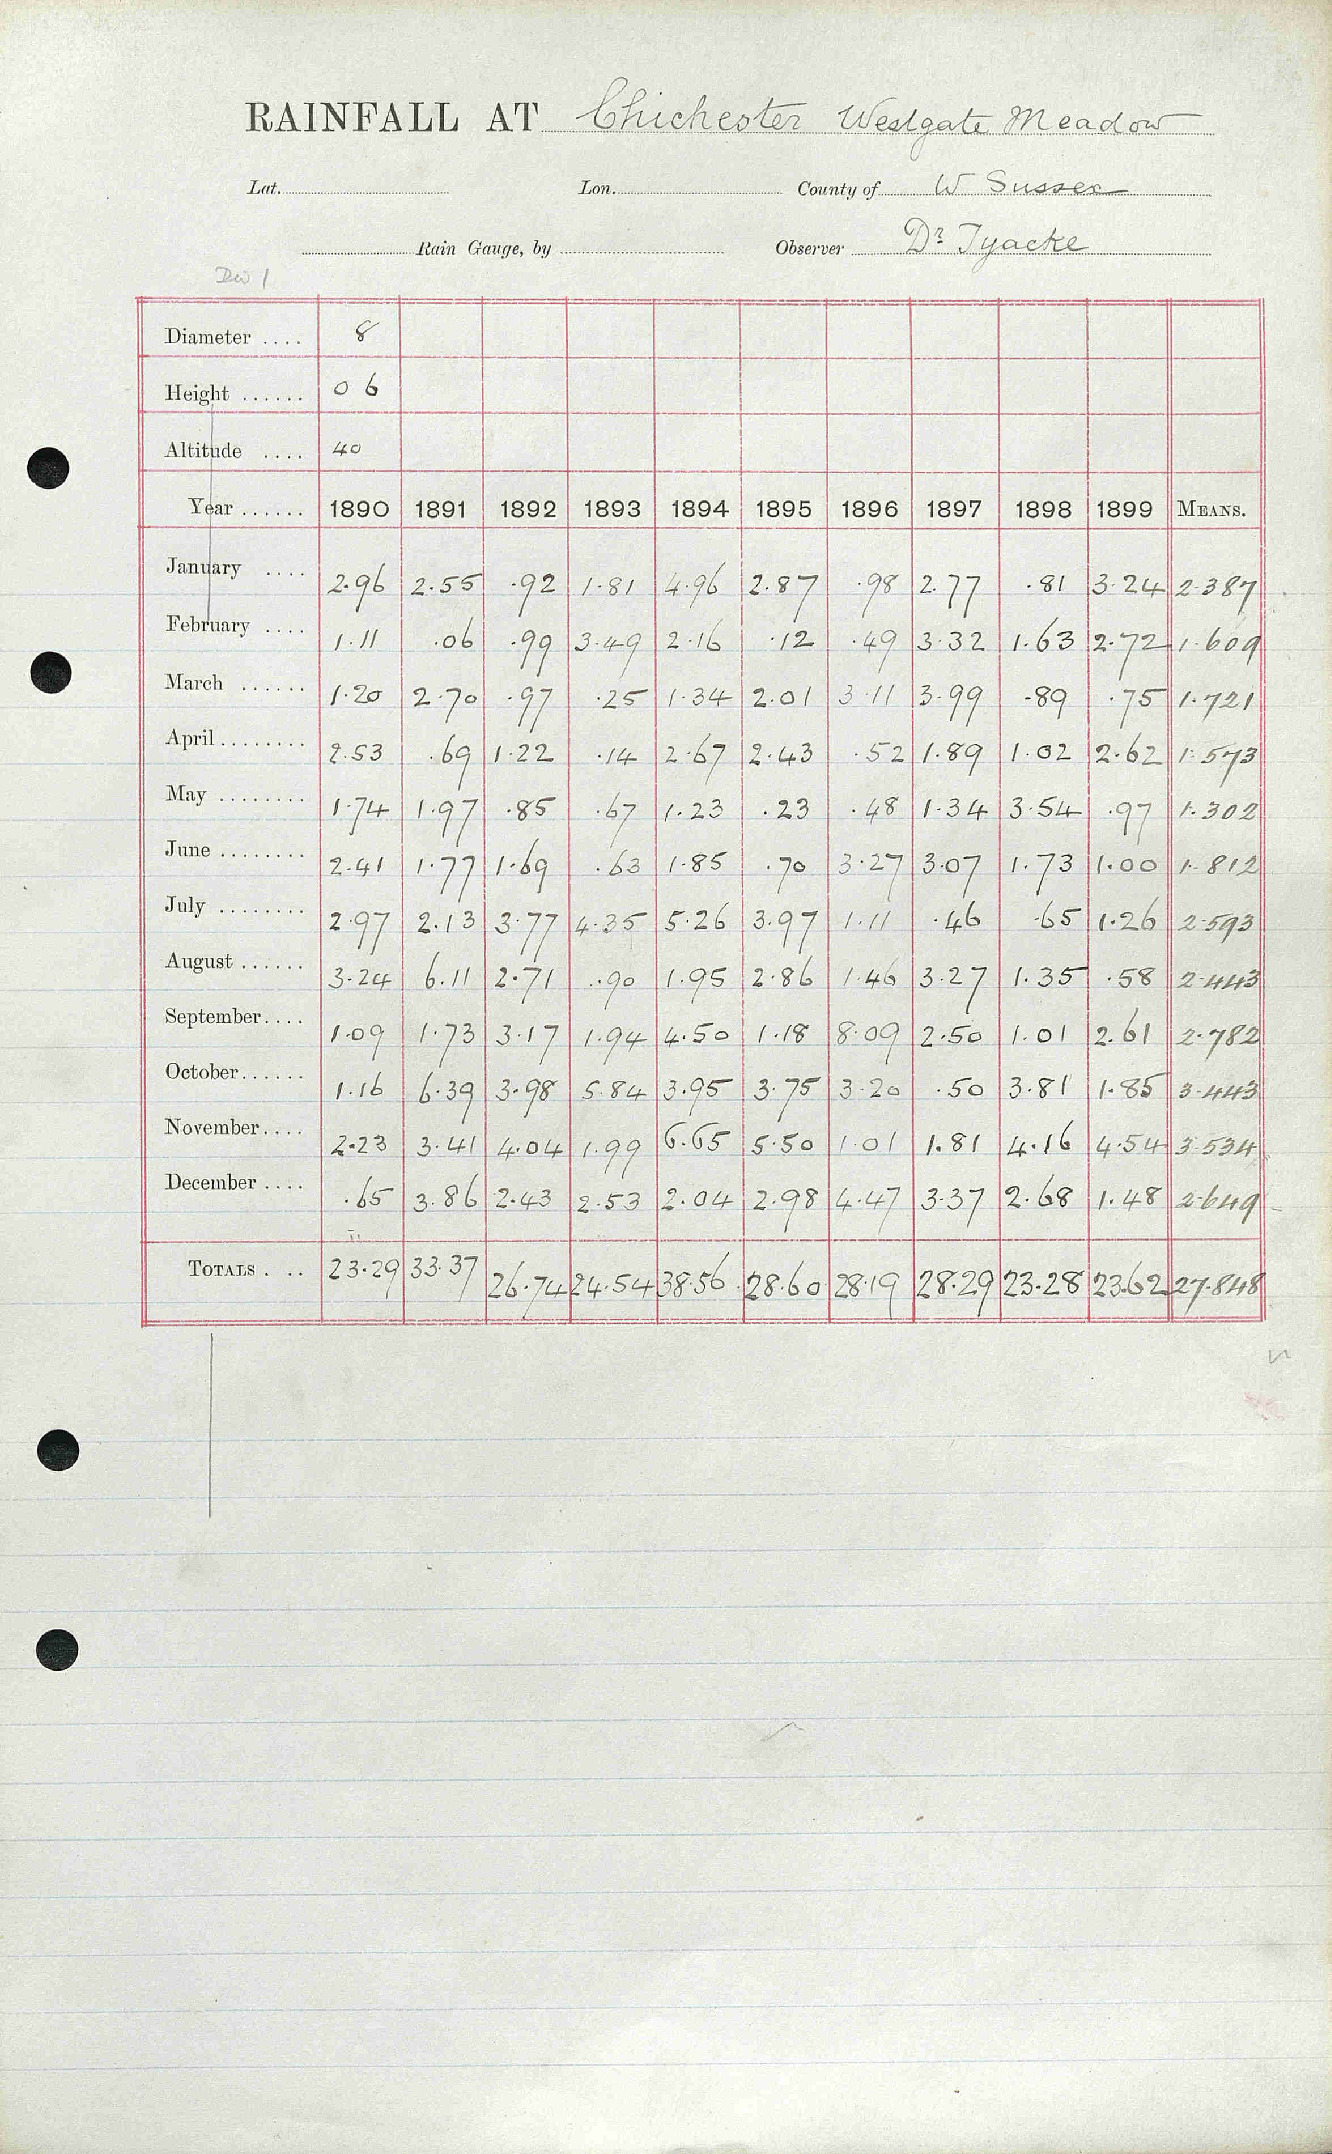 RAINFALL AT Chichester Westgate Meadow
Lat. Lon. County of W Sussex
Rain Gauge, by Observer Dr Tyacke
Diameter .... 8
Height ...... 0 6
Altitude .... 40
Year ...... 1890 1891 1892 1893 1894 1895 1896 1897 1898 1899 MEANS.
January .... 2.96 2.55 .92 1.81 4.96 2.87 .98 2.77 .81 3.24 2.387
February .... 1.11 .06 .99 3.49 2.16 .12 .49 3.32 1.63 2.72 1.609
March ...... 1.20 2.70 .97 .25 1.34 2.01 3.11 3.99 .89 .75 1.721
April ........ 2.53 .69 1.22 .14 2.67 2.43 .52 1.89 1.02 2.62 1.573
May ........ 1.74 1.97 .85 .67 1.23 .23 .48 1.34 3.54 .97 1.302
June ........ 2.41 1.77 1.69 .63 1.85 .70 3.27 3.07 1.73 1.00 1.812
July ........ 2.97 2.13 3.77 4.35 5.26 3.97 1.11 .46 .65 1.26 2.593
August ...... 3.24 6.11 2.71 .90 1.95 2.86 1.46 3.27 1.35 .58 2.443
September .... 1.09 1.73 3.17 1.94 4.50 1.18 8.09 2.50 1.01 2.61 2.782
October ...... 1.16 6.39 3.98 5.84 3.95 3.75 3.20 .50 3.81 1.85 3.443
November .... 2.23 3.41 4.04 1.99 6.65 5.50 1.01 1.81 4.16 4.54 3.534
December .... .65 3.86 2.43 2.53 2.04 2.98 4.47 3.37 2.68 1.48 2.649
TOTALS . .. 23.29 33.37 26.74 24.54 38.56 28.60 28.19 28.29 23.28 23.62 27.848